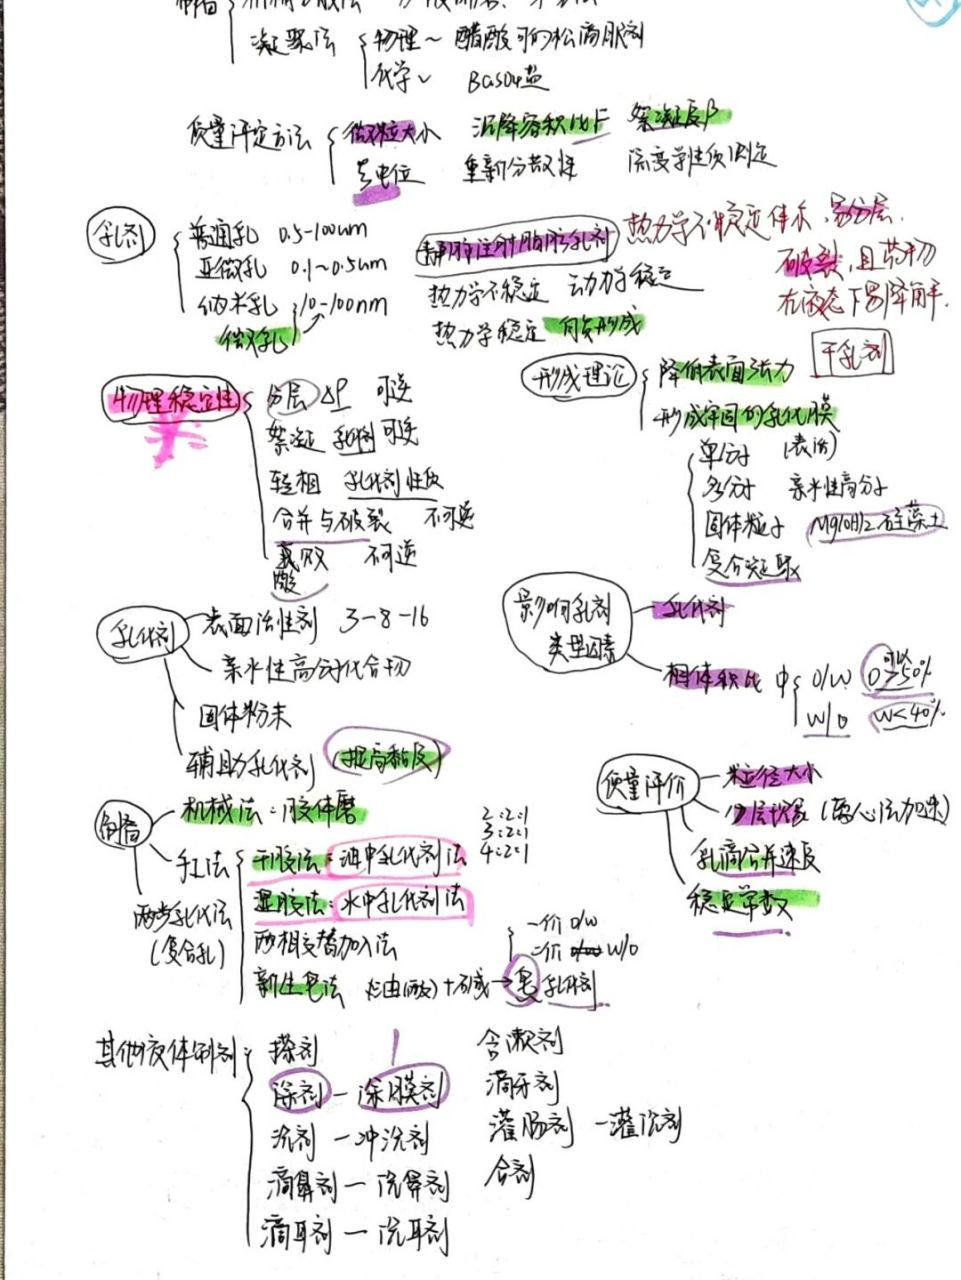 凝聚法 物理~ 醋酸可的松滴眼剂
化学~ BaSO4盐
质量评定方法 微粒大小 沉降容积比F 絮凝度β
ξ电位 重新分散性 流变学性质测定
乳剂 普通乳 0.5-100um
亚微乳 0.1~0.5um 静脉注射脂肪乳剂
纳米乳 10-100nm 热力学不稳定 动力学稳定
微乳 热力学稳定 自发形成
热力学不稳定体系,易分层,
破裂,且药物
在液态下易降解.
干乳剂
物理稳定性 分层 ΔP 可逆
絮凝 乳剂 可逆
转相 乳化剂性质
合并与破裂 不可逆
酸败 不可逆
酸
形成理论 降低表面张力
形成牢固的乳化膜
单分子 (表活)
多分子 亲水性高分子
固体粒子 Mg(OH)2 硅藻土
复合凝聚
乳化剂 表面活性剂 3-8-16
亲水性高分子化合物
固体粉末
辅助乳化剂 (提高黏度)
影响乳剂
类型因素
乳化剂
相体积比 中 O/W 可以
O>50%
W/O W<40%
制备 机械法:胶体磨
手工法 干胶法:油中乳化剂法
湿胶法:水中乳化剂法
两相交替加入法
新生皂法 油(酸)+碱→皂乳化剂
2:2:1
3:2:1
4:2:1
一价 O/W
二价 W/O
两步乳化法
(复合乳)
质量评价 粒径大小
分层现象 (离心法加速)
乳滴合并速度
稳定常数
其他液体制剂 搽剂 含漱剂
涂剂-涂膜剂 滴牙剂
洗剂-冲洗剂 灌肠剂-灌洗剂
滴鼻剂-洗鼻剂 合剂
滴耳剂-洗耳剂